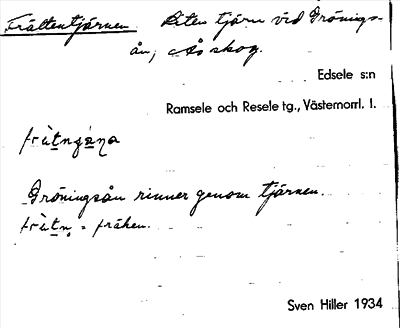 Frältentjärnen. Liten tjärn vid Grönings-
ån, Ås skog.
Edsele s:n
Ramsele och Resele tg., Västernorrl. l.
Gröningsån rinner genom tjärnen.
= fräken.
Sven Hiller 1934